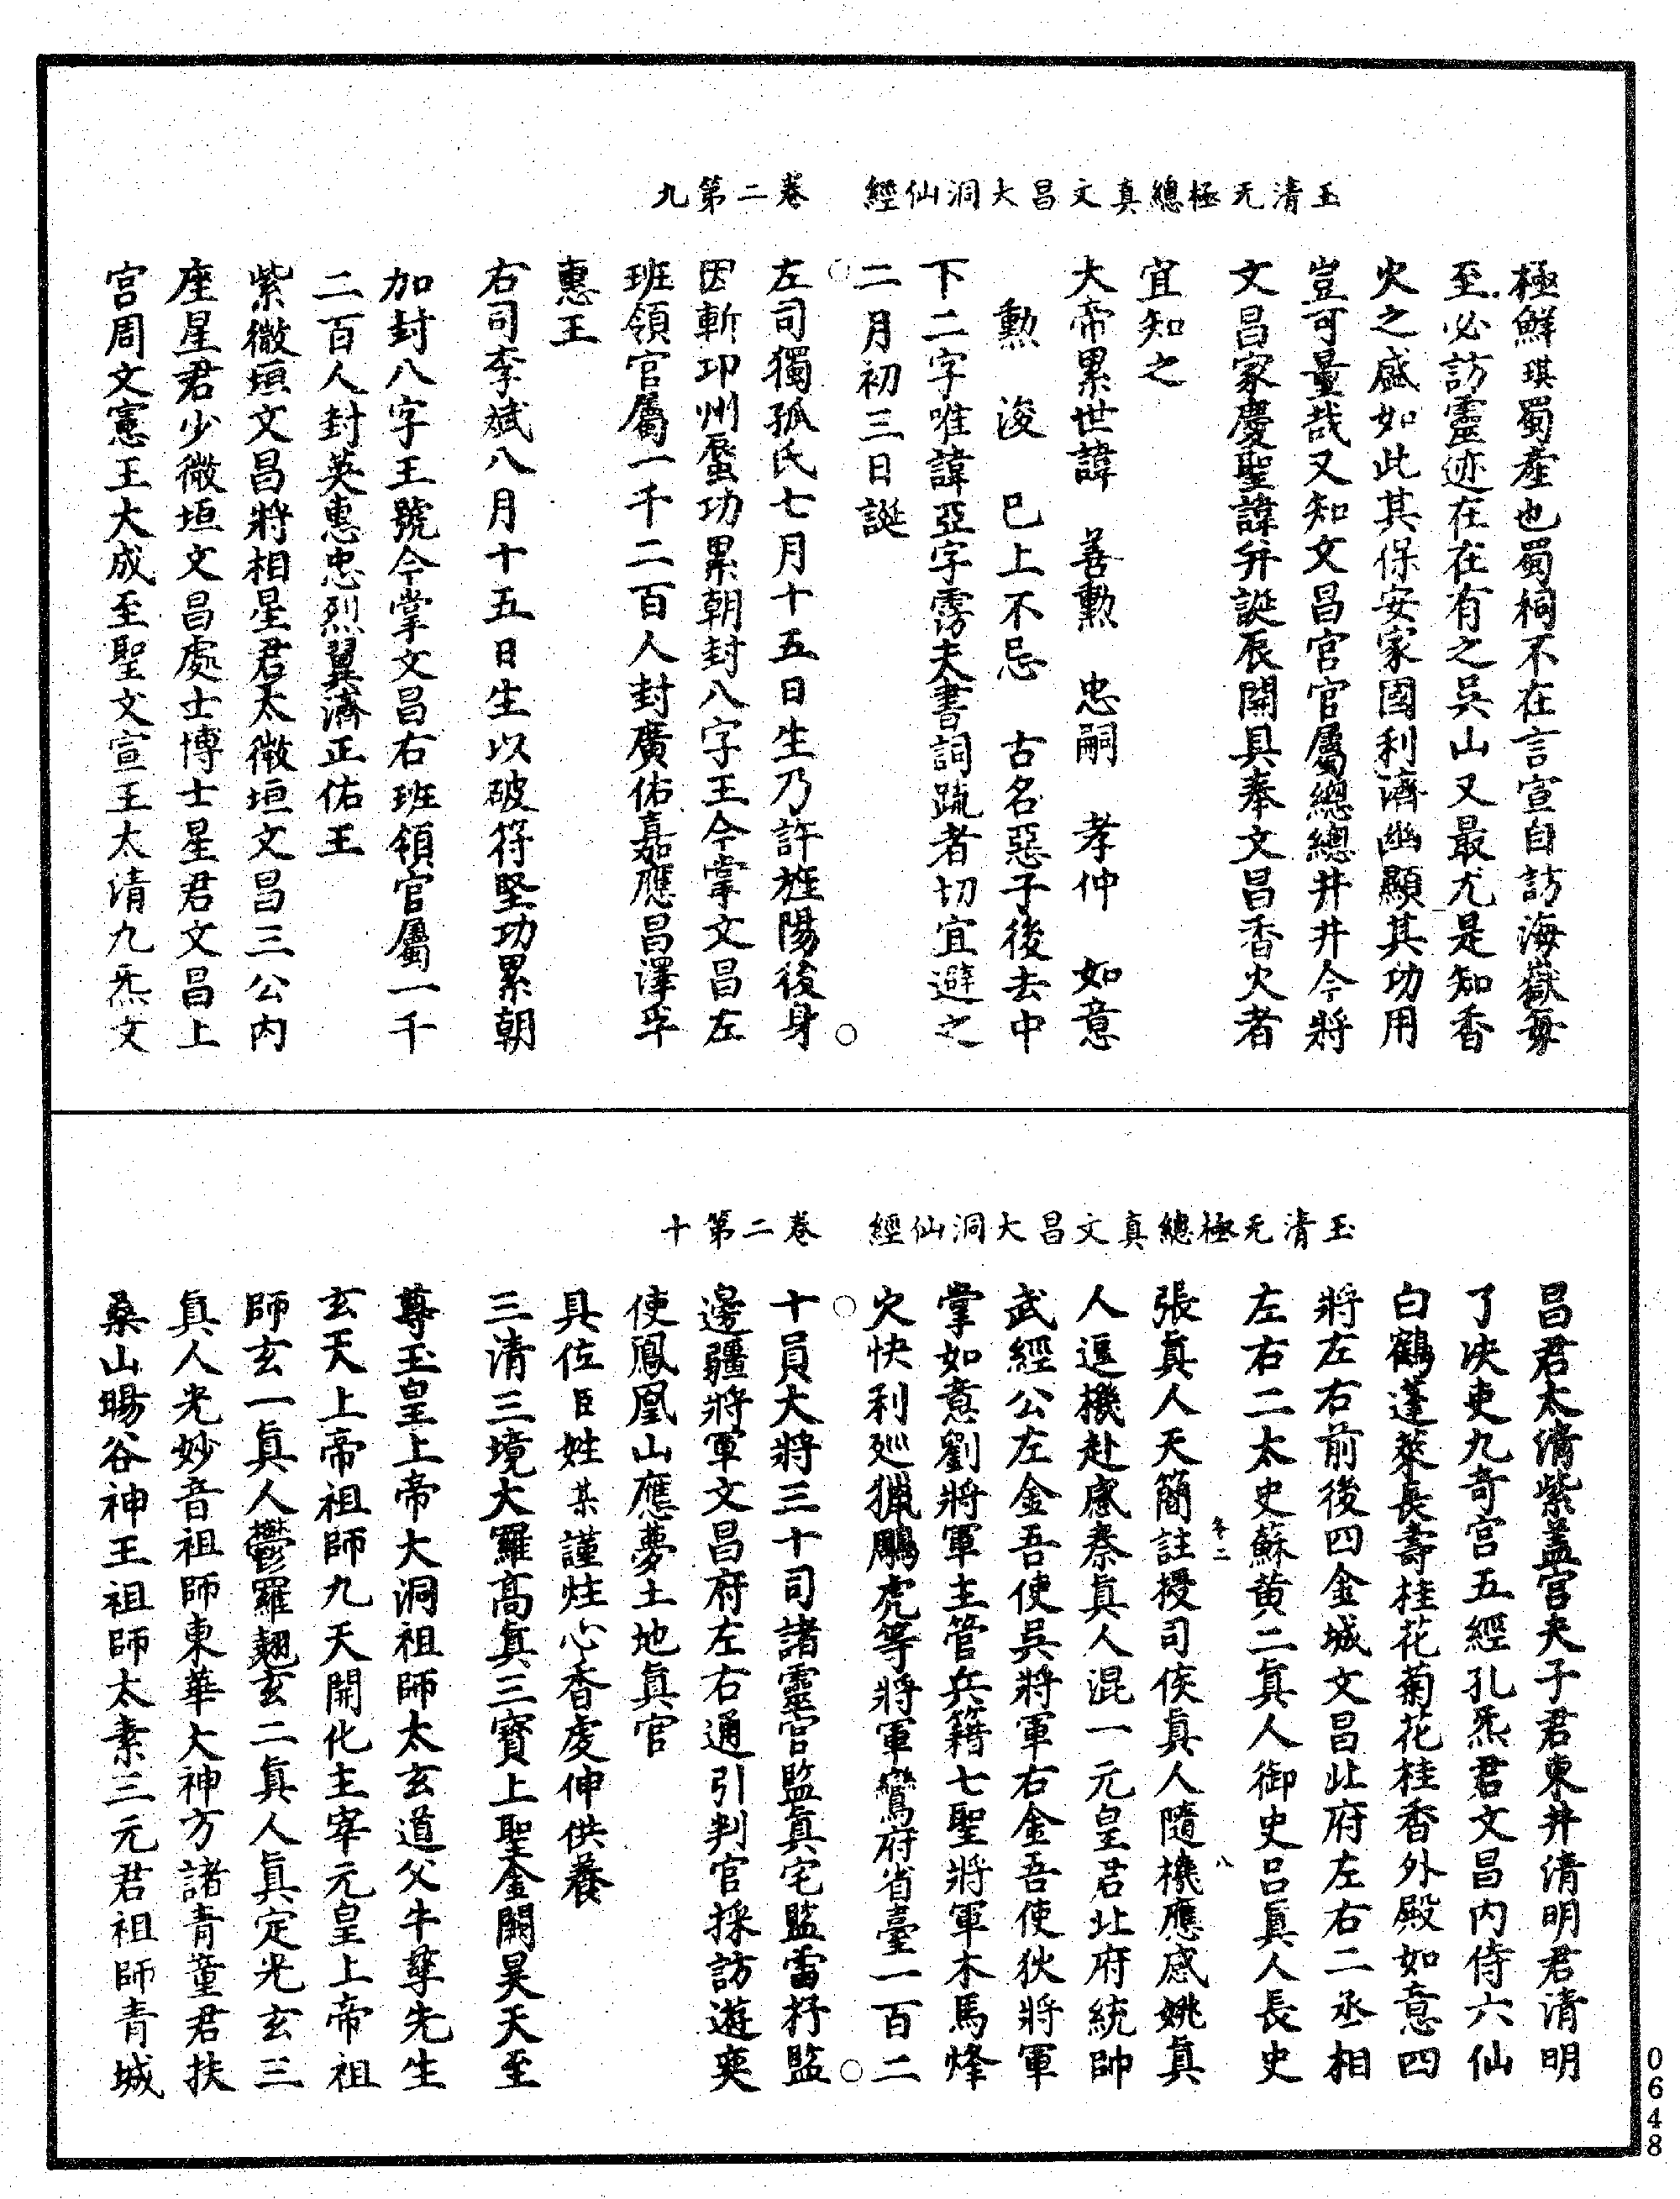 玉清无極總真文昌大洞仙經　卷二第九
極鮮琪蜀產也蜀祠不在言宣自訪海嶽每
至必訪靈迹在在有之吳山又最尤是知香
火之盛如此其保安家國利濟幽顯其功用
豈可量哉又知文昌宮官屬總總井井今將
文昌家慶聖諱并誕辰開具奉文昌香火者
宜知之
大帝累世諱　善勳　忠嗣　孝仲　如意
勳　浚　巳上不忌　古名惡子後去中
下二字唯諱亞字霶夫書詞疏者切宜避之
二月初三日誕
左司獨孤氏七月十五日生乃許旌陽後身
因斬邛州蜃功累朝封八字王今掌文昌左
班領官屬一千二百人封廣佑嘉應昌澤孚
惠王
右司李斌八月十五日生以破苻堅功累朝
加封八字王號今掌文昌右班領官屬一千
二百人封英惠忠烈翼濟正佑王
紫微垣文昌將相星君太微垣文昌三公內
座星君少微垣文昌處士博士星君文昌上
宮周文憲王大成至聖文宣王太清九炁文
玉清无極總真文昌大洞仙經　卷二第十
昌君太清紫蓋宮夫子君東井清明君清明
了決吏九奇宮五經孔炁君文昌內侍六仙
白鶴蓬萊長壽桂花菊花桂香外殿如意四
將左右前後四金城文昌北府左右二丞相
左右二太史蘇黃二真人御史呂真人長史
卷二　八
張真人天簡註擾司侯真人隨機應感姚真
人逗機赴感秦真人混一元皇君北府統帥
武經公左金吾使吳將軍右金吾使狄將軍
掌如意劉將軍主管兵籍七聖將軍木馬烽
火快利巡獵鵰虎等將軍鸞府省臺一百二
十員大將三十司諸靈官監真宅監雷抒監
邊疆將軍文昌府左右通引判官採訪遊奕
使鳳凰山應夢土地真官
具位臣姓某謹炷心香虔伸供養
三清三境大羅高真三寶上聖金闕昊天至
尊玉皇上帝大洞祖師太玄道父牛犖先生
玄天上帝祖師九天開化主宰元皇上帝祖
師玄一真人鬱羅翹玄二真人真定光玄三
真人光妙音祖師東華大神方諸青童君扶
桑山暘谷神王祖師太素三元君祖師青城
0648